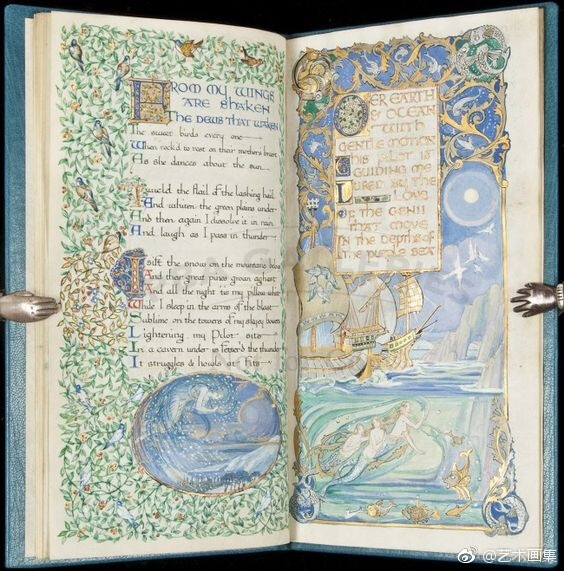 FROM MY WINGS
ARE SHAKEN
THE DEWS THAT WAKEN
The sweet birds every one
When rock'd to rest on their mothers breast
As she dances about the sun
I wield the flail of the lashing hail
And whiten the green plains under
And then again I dissolve it in rain
And laugh as I pass in thunder
I sift the snow on the mountains below
And their great pines groan aghast
And all the night tis my pillow white
While I sleep in the arms of the blast
Sublime on the towers of my skyey bowers
Lightening my Pilot sits
In a cavern under is fetter'd the thunder
It struggles & howls at fits
OVER EARTH
& OCEAN
WITH
GENTLE MOTION
THIS PILOT IS
GUIDING ME
LURED BY THE
LOVE
OF THE GENII
THAT MOVE
IN THE DEPTHS OF
THE PURPLE SEA
@艺术画集